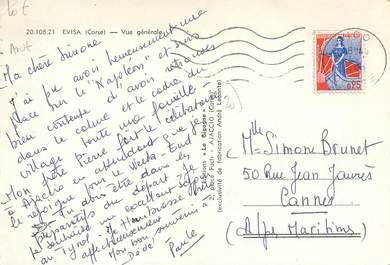 lot
20.108.21 EVISA (Corse) — Vue générale
Ma chère Simone
J'ai pu avoir heureusement une
place sur le "Napoléon" et suis
bien contente d'avoir retrouvé
dans le calme et le cadre du
village toute ma famille.
Mon Pierre fait le célibataire
à Ajaccio en attendant que je
le rejoigne pour le Week-End
Tu dois être dans les
préparatifs du départ. Je
te souhaite un excellent séjour
au Tyrol. Je t'embrasse
affectueusement
Mon bon souvenir
Dédé
Paule
Editions « La Cigogne »
AJACCIO
(exclusivité de fabrication André Leconte)
AJACCIO
0,25
Mlle Simone Brunet
50 Rue Jean Jaurès
CANNES
(Alpes Maritimes)